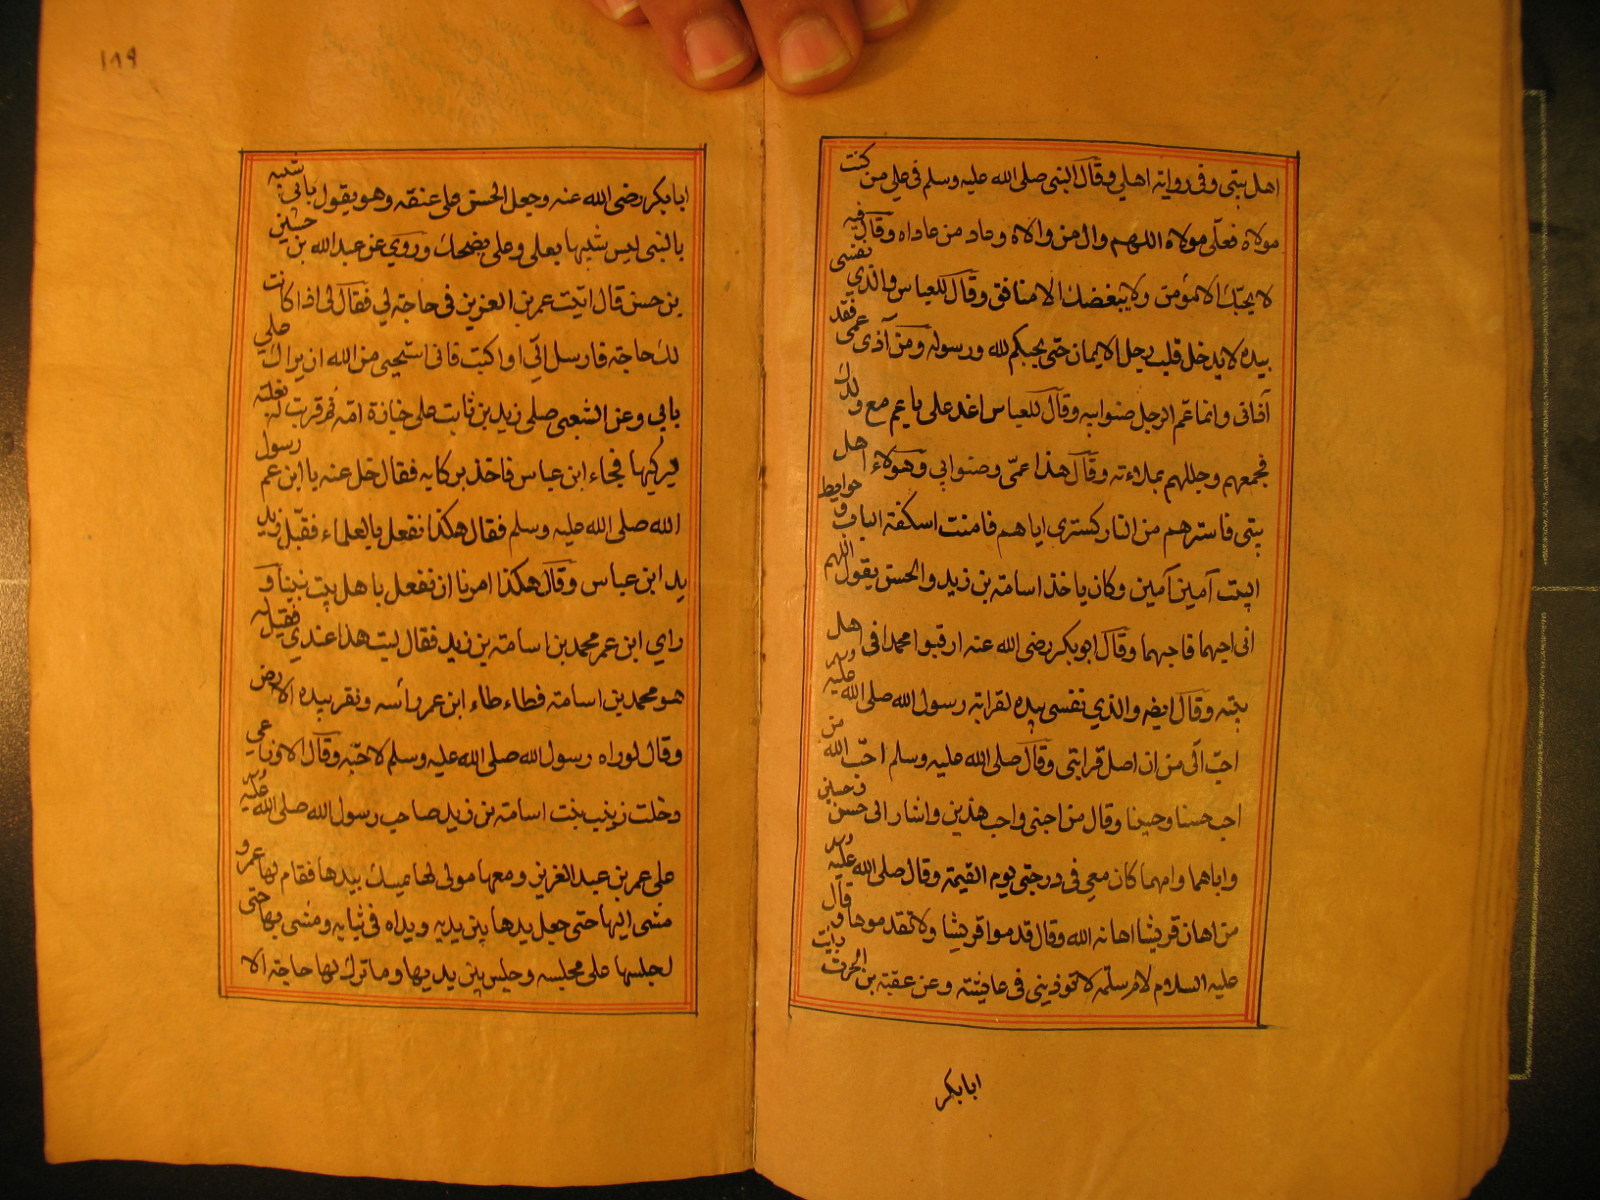 اهل بيتى وفى رواية اهلي وقال النبى صلى الله عليه وسلم فى علي من كنت
مولاه فعلّي مولاه اللهم وال من والاه وعاد من عاداه وقال فيه
لا يحبّك الا مؤمن ولا يبغضك الا منافق وقال للعباس والذي نفسى
بيده لا يدخل قلب رجل الايمان حتى يحبكم لله ورسوله ومن آذى عمى فقد
آذانى وانما عم الرجل صنوابيه وقال للعباس اغد على يا عم مع ولدك
فجمعهم وجللهم بملاءته وقال هذا عمّى وصنوابي وهولاء اهل
بيتى فاسترهم من النار كسترى اياهم فامنت اسكفة الباب وحوايط
البيت آمين آمين وكان ياخذ اسامة بن زيد والحسن يقول اللهم
انى احبهما فاحبهما وقال ابو بكر رضى الله عنه ارقبوا محمدا فى اهل
بيته وقال ايضه والذي نفسى بيده لقرابة رسول الله صلى الله عليه وسلم
احبّ الّى من ان اصل قرابتى وقال صلى الله عليه وسلم احبّ الله من
احب حسنا وحسينا وقال من احبنى واحب هذين واشار الى حسن وحسين
واباهما وامهما كان معي فى درجتى يوم القيمة وقال صلى الله عليه وسلم
من اهان قريشا اهانه الله وقال قدموا قريشا ولا تقدموها وقال
عليه السلام لام سلمة لا تؤذينى فى عايشة وعن عقبة بن الحرث رايت
ابابكر
١٨٩
ابابكر رضى الله عنه وجعل الحسن على عنقه وهو يقول بابي شبيه
بالنبى ليس شبيها بعلى وعلى يضحك وروي عن عبد الله بن حسين
بن حسن قال اتيت عمر بن العزيز فى حاجة لي فقال لى اذا كانت
لك حاجة فارسل الّي او اكتب فانى استحيى من الله ان يراك على
بابي وعن الشعبى صلى زيد بن ثابت على جنازة امّه ثم قربت له بغلته
ليركبها فجاء ابن عباس فاخذ بركابه فقال خل عنه يا ابن عم رسول
الله صلى الله عليه وسلم فقال هكذا نفعل بالعلماء فقبّل زيد
يد ابن عباس وقال هكذا امرنا ان نفعل باهل بيت نبينا و
راي ابن عمر محمد بن اسامة بن زيد فقال ليت هذا عندي فقيل له
هو محمد بن اسامة فطاءطاء ابن عمر رائسه ونقر بيده الارض
وقال لو راه رسول الله صلى الله عليه وسلم لاحبّه وقال الاوزاعي
دخلت زينب بنت اسامة بن زيد صاحب رسول الله صلى الله عليه وسلم
على عمر بن عبد العزيز ومعها مولى لها يمسك بيدها فقام لها عمر و
مشى اليها حتى جعل يدها بين يديه ويداه فى ثيابه ومشى بها حتى
اجلسها على مجلسه وجلس بين يديها وما ترك لها حاجة الا